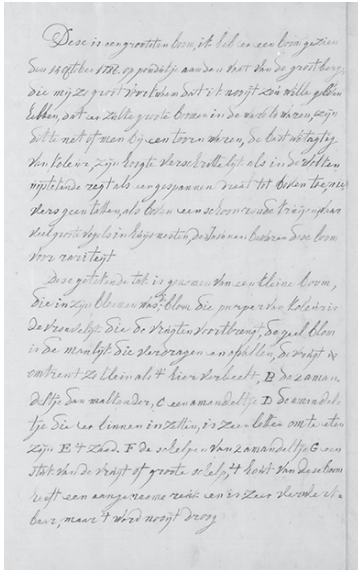 Dese is een grootsten boom, ik heb er een boom gezien
den 14 ofber 1786. op poudatje aan den voet van de groot berg
die mij zo groot voor kwam dat ik nooijt zou wille geloven
hebben, dat er zulke groote bomen in de werelt waren, zijn
dikte net of men bij een toren waren, de bast witagtig
van koleur, zijn hoogte verschrikkelijk als in de wolken
uijtstekende regt als een gespannen draat tot boven toe, ner
vers geen takken, als boven een schoon ronde kruijn, daar
veel groote vogels in haijr nesten, de boom
voor rariteijt
Dese getekende tak is genomen van een kleine boom,
die in zijn bloemen was, de blom die purper van koleur is
de vrouwelijk die de vrugten voortbrengt, de geel blom
is de manlijk die verdragen en opvullen, de vrugt is
omtrent zo klein als 't hier verbeelt, B de zaman-
deltje dan malkander, C een amandeltje D de amandel-
tje die er binnen in zitten, is zeer lekker om te eten
zijn E 't zaad. F de schelpen van 2 amandeltje G een
stuk van de vrugt of groote schelp, 't hout van dese boom
heeft een aangename reuk en is zeer
baar, maar 't word nooijt droog